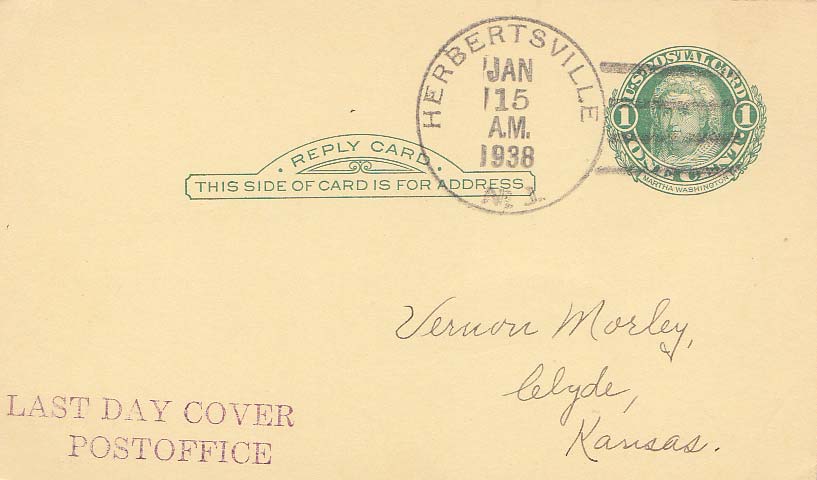 HERBERTSVILLE
JAN
15
A.M.
1938
N. J.
U.S. POSTAL CARD
1 1
ONE CENT
MARTHA WASHINGTON
REPLY CARD
THIS SIDE OF CARD IS FOR ADDRESS
Vernon Morley,
Clyde,
Kansas.
LAST DAY COVER
POSTOFFICE